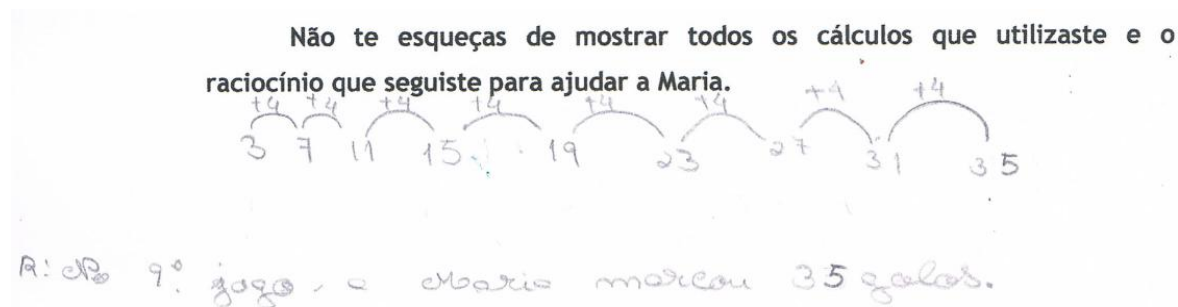 Não te esqueças de mostrar todos os cálculos que utilizaste e o
raciocínio que seguiste para ajudar a Maria.
+4 +4 +4 +4 +4 +4 +4 +4
3 7 11 15 19 23 27 31 35
R: No 9º jogo, a Maria marcou 35 golos.